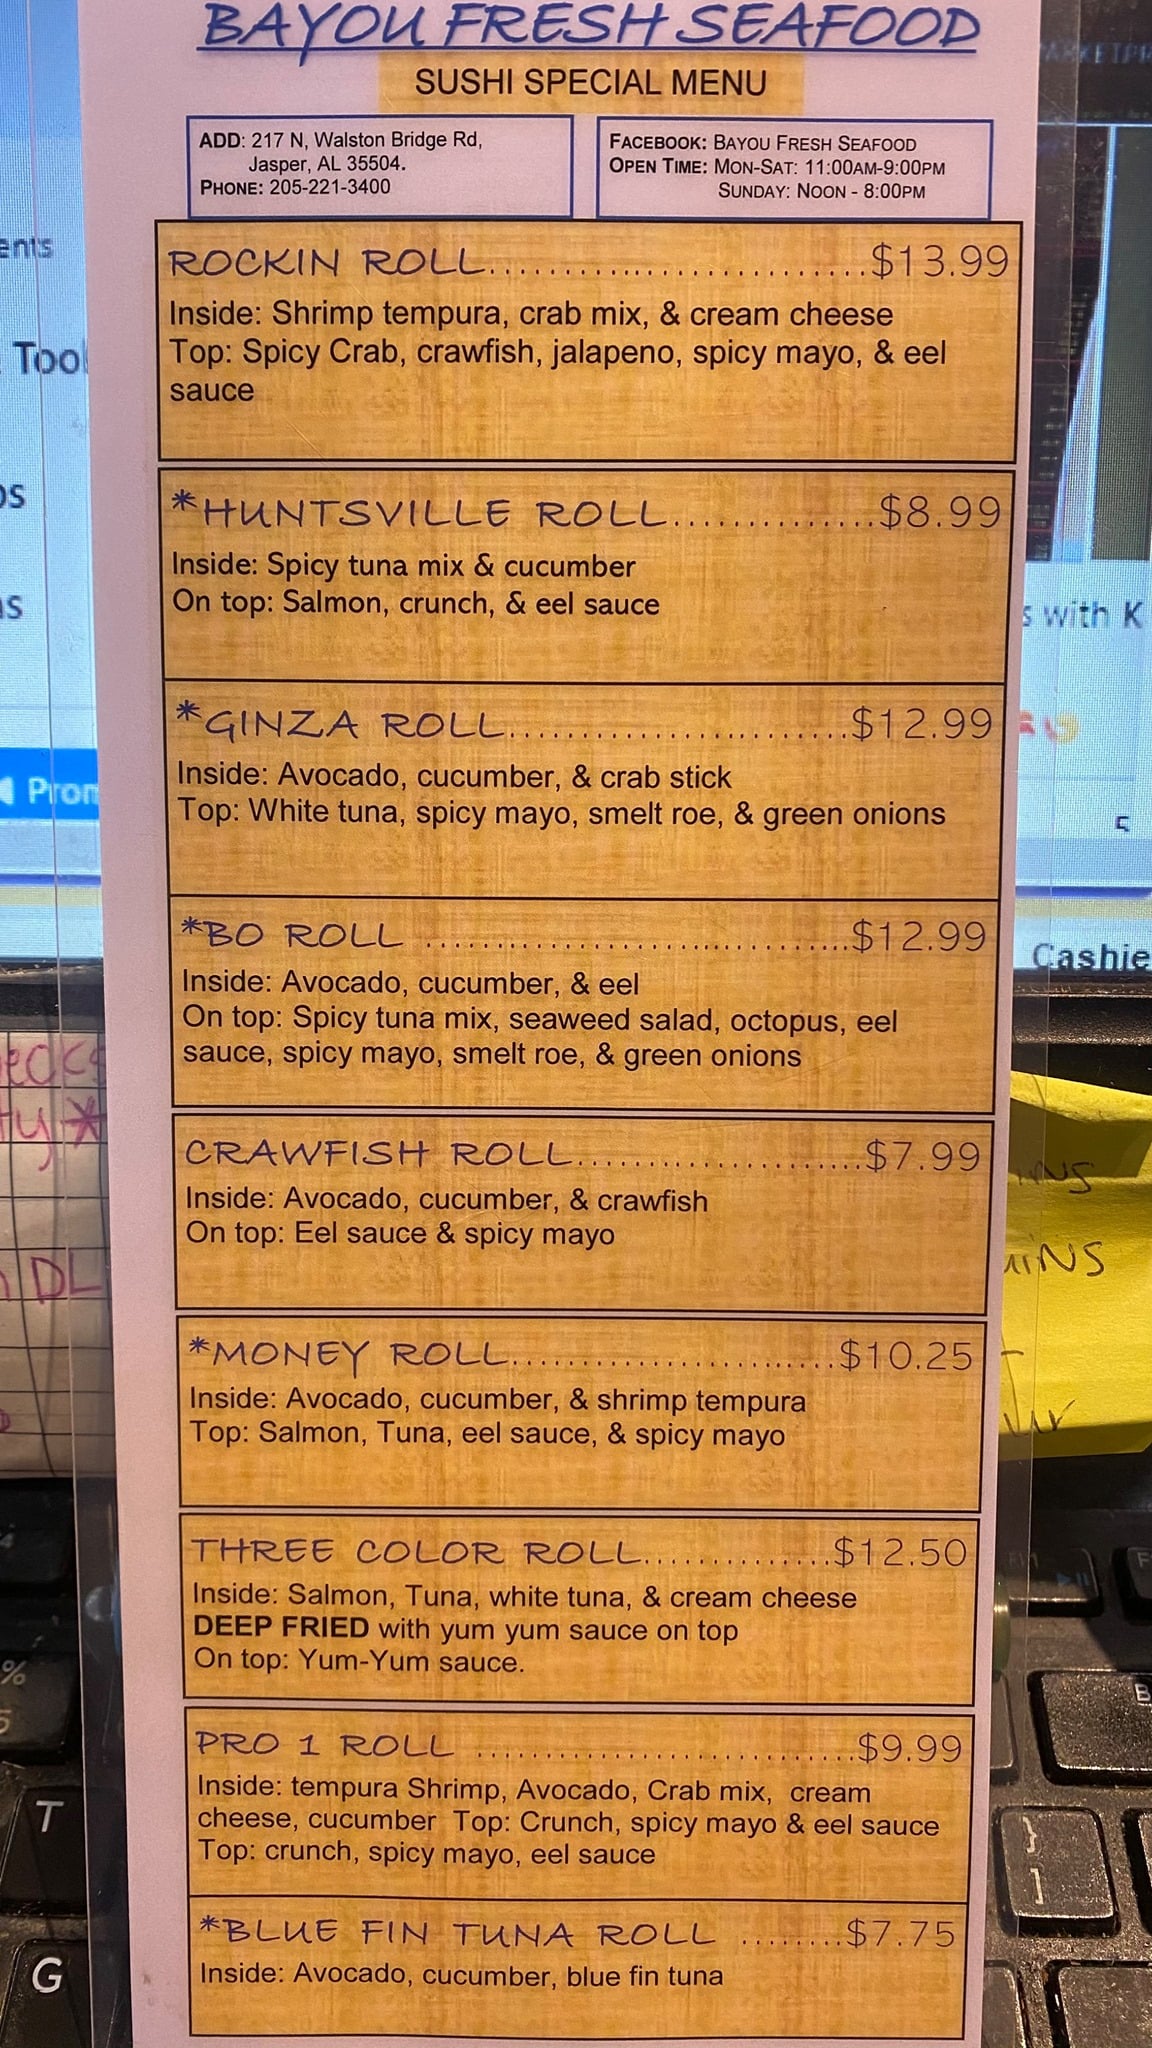 BAYOU FRESH SEAFOOD
SUSHI SPECIAL MENU
ADD: 217 N, Walston Bridge Rd,
Jasper, AL 35504.
PHONE: 205-221-3400
FACEBOOK: BAYOU FRESH SEAFOOD
OPEN TIME: MON-SAT: 11:00AM-9:00PM
SUNDAY: NOON - 8:00PM
ROCKIN ROLL..............................$13.99
Inside: Shrimp tempura, crab mix, & cream cheese
Top: Spicy Crab, crawfish, jalapeno, spicy mayo, & eel
sauce
*HUNTSVILLE ROLL..............$8.99
Inside: Spicy tuna mix & cucumber
On top: Salmon, crunch, & eel sauce
*GINZA ROLL..........................$12.99
Inside: Avocado, cucumber, & crab stick
Top: White tuna, spicy mayo, smelt roe, & green onions
*BO ROLL ................................$12.99
Inside: Avocado, cucumber, & eel
On top: Spicy tuna mix, seaweed salad, octopus, eel
sauce, spicy mayo, smelt roe, & green onions
CRAWFISH ROLL......................$7.99
Inside: Avocado, cucumber, & crawfish
On top: Eel sauce & spicy mayo
*MONEY ROLL.........................$10.25
Inside: Avocado, cucumber, & shrimp tempura
Top: Salmon, Tuna, eel sauce, & spicy mayo
THREE COLOR ROLL..............$12.50
Inside: Salmon, Tuna, white tuna, & cream cheese
DEEP FRIED with yum yum sauce on top
On top: Yum-Yum sauce.
PRO 1 ROLL ............................$9.99
Inside: tempura Shrimp, Avocado, Crab mix, cream
cheese, cucumber Top: Crunch, spicy mayo & eel sauce
Top: crunch, spicy mayo, eel sauce
*BLUE FIN TUNA ROLL ........$7.75
Inside: Avocado, cucumber, blue fin tuna
with K
DL
T
G
%
5
}
]